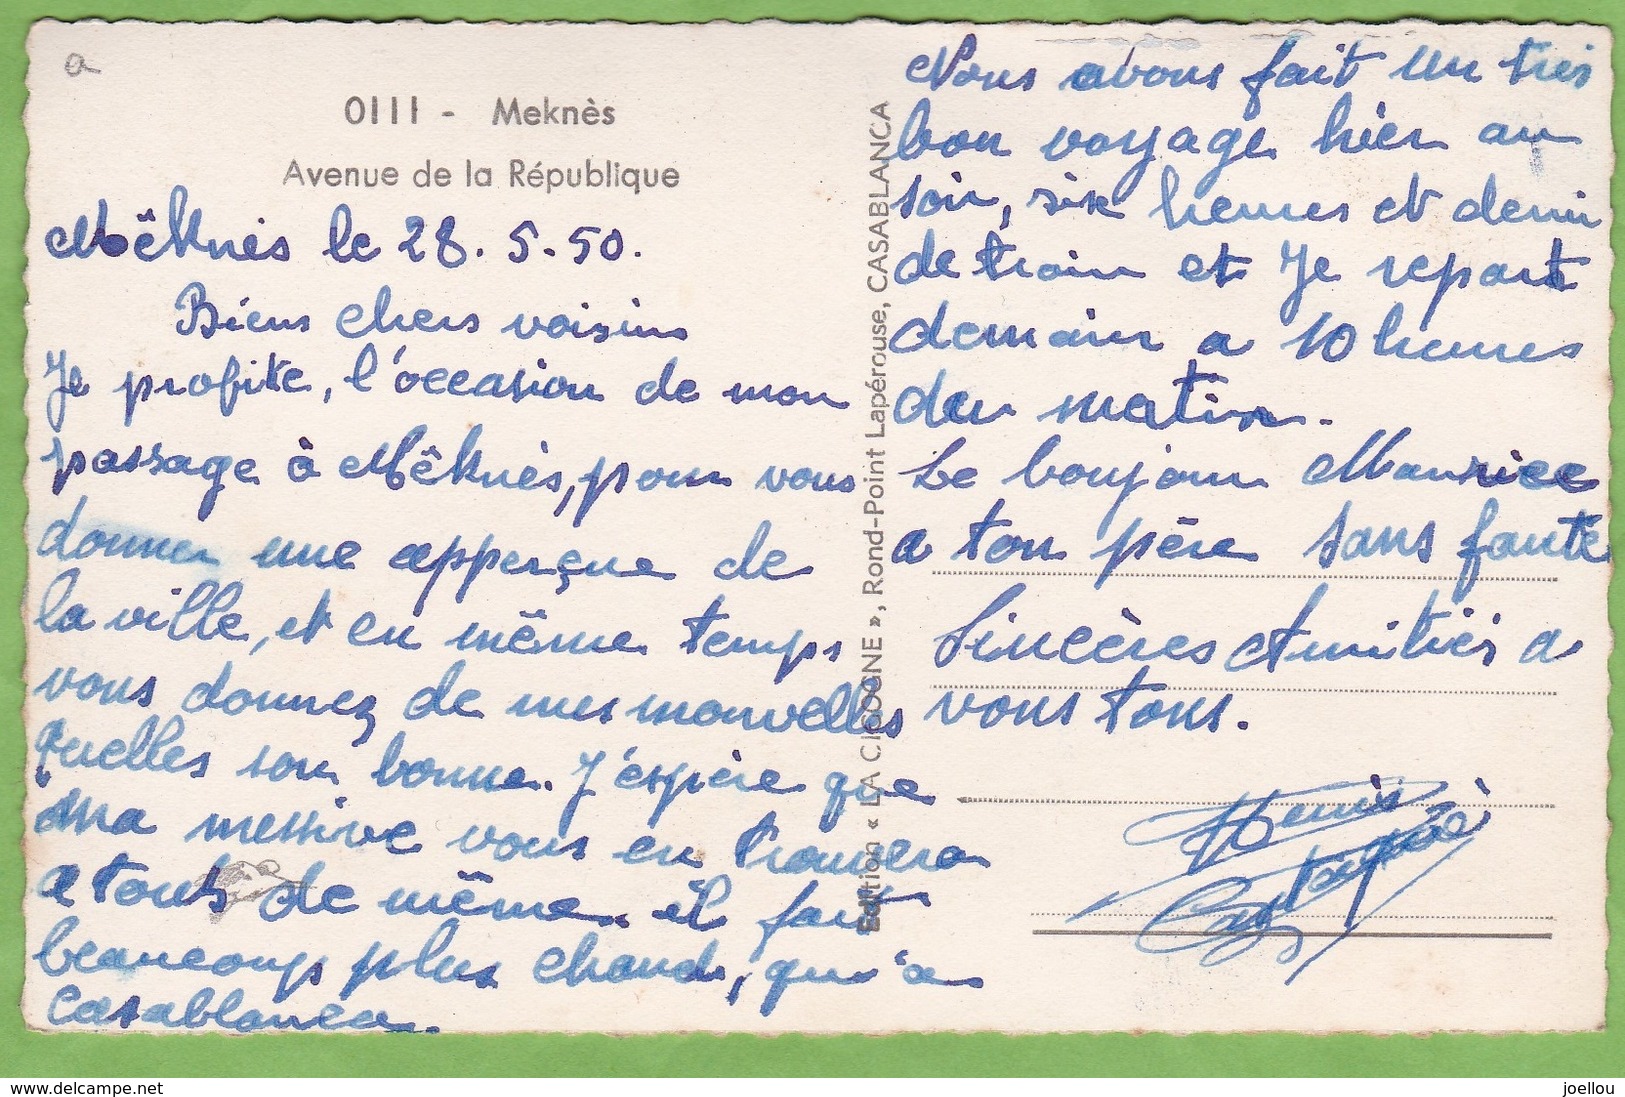 a
0111 - Meknès
Avenue de la République
Mêknès le 28.5.50.
Biens chers voisins
Je profite, l'occasion de mon
passage à Mêknès, pour vous
donner une apperçue de
la ville, et en même temps
vous donnez de mes nouvelles
quelles son bonne. J'espère que
ma messive vous en trouvera
a tous de même il fait
beaucoup plus chaud, qu'a
Casablanca.
Edition « LA CIGOGNE », Rond-Point Lapérouse, CASABLANCA
Nous avons fait un très
bon voyage hier au
soir, six heures et demi
de train et Je repart
demain a 10 heures
du matin.
Le bonjour Maurice
a ton père sans faute
Sincères Amitiés a
vous tous.
joellou